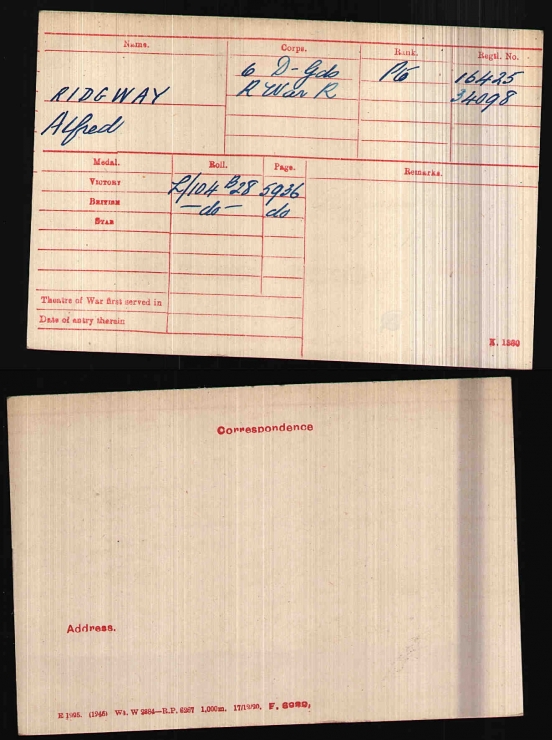 Name. Corps. Rank. Regtl. No.
6 D-Gds Pte 16425
RIDGWAY R War R 34098
Alfred
Medal. Roll. Page. Remarks.
VICTORY L/104 B28 5936
BRITISH —do— do
STAR
Theatre of War first served in
Date of entry therein
K. 1380
Correspondence
Address.
E 1925. (1945) Wt. W 2584—R.P. 6267 1,000m. 17/12/20.